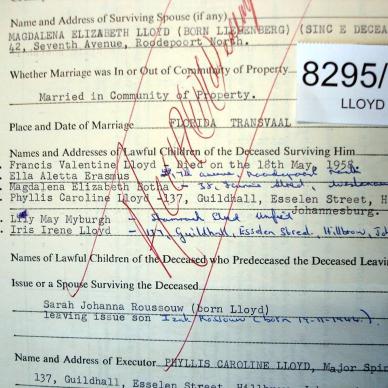 Name and Address of Surviving Spouse (if any)
MAGDALENA ELIZABETH LLOYD (BORN LIEBENBERG) (SINC E DECEA
42, Seventh Avenue, Roodepoort North.
8295/
LLOYD
Whether Marriage was In or Out of Community of Property
Married in Community of Property.
Place and Date of Marriage FLORIDA TRANSVAAL
Names and Addresses of Lawful Children of the Deceased Surviving Him
Francis Valentine Lloyd - Died on the 18th May, 1958.
Ella Aletta Erasmus - 7th avenue, Roodepoort North
Magdalena Elizabeth Botha - 35,
Phyllis Caroline Lloyd -137, Guildhall, Esselen Street, H
Johannesburg.
Lily May Myburgh -
Iris Irene Lloyd - 137, Guildhall, Esselen Street, Hillbrow, Jo
Names of Lawful Children of the Deceased who Predeceased the Deceased Leavi
Issue or a Spouse Surviving the Deceased
Sarah Johanna Roussouw (born Lloyd)
leaving issue son Izak Rossouw (born 17-11-1946).
Name and Address of Executor PHYLLIS CAROLINE LLOYD, Major Spin
137, Guildhall, Esselen Street, Hillbrow, Joha